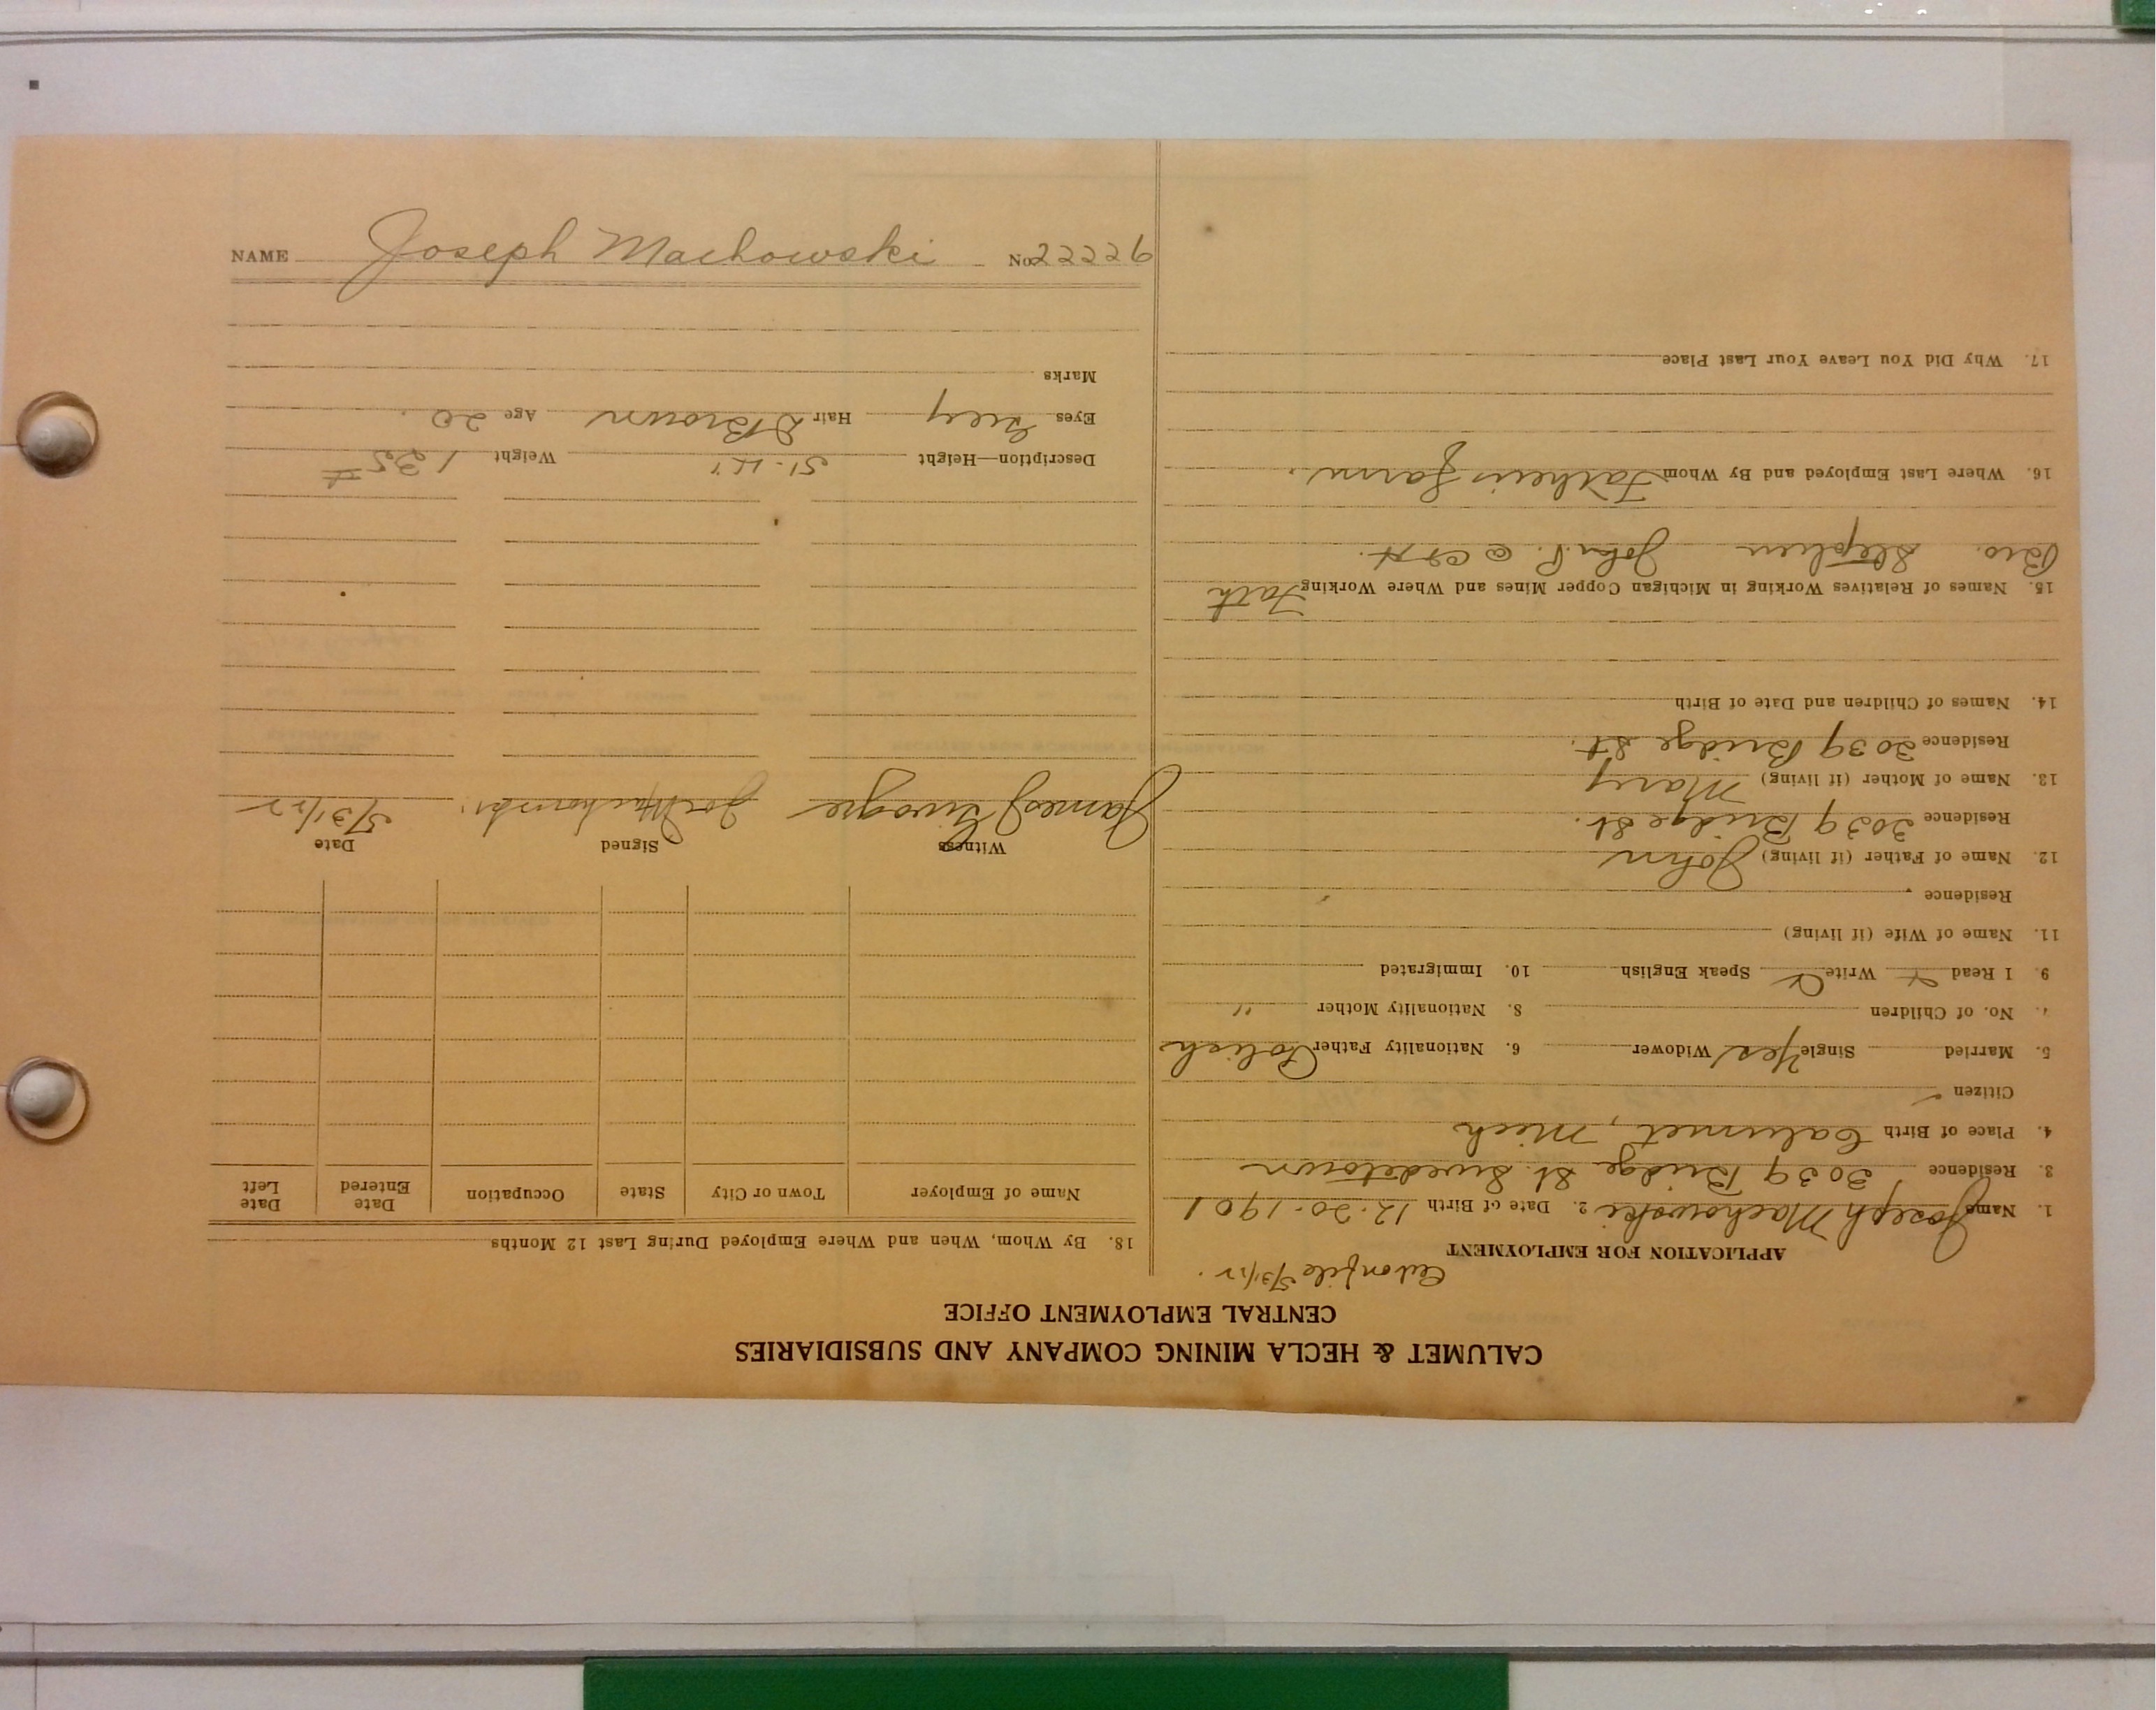 NAME Joseph Machowski No. 22226
CALUMET & HECLA MINING COMPANY AND SUBSIDIARIES
CENTRAL EMPLOYMENT OFFICE
APPLICATION FOR EMPLOYMENT
on file 5/31/22.
1. Name Joseph Machowski 2. Date of Birth 12-20-1901
3. Residence 3039 Bridge St. Swedetown
4. Place of Birth Calumet, Mich
Citizen
5. Married Single Yes Widower 6. Nationality Father Polish
7. No. of Children 8. Nationality Mother "
9. I Read Write Speak English 10. Immigrated
11. Name of Wife (if living)
Residence
12. Name of Father (if living) John
Residence 3039 Bridge St.
13. Name of Mother (if living) Mary
Residence 3039 Bridge St.
14. Names of Children and Date of Birth
15. Names of Relatives Working in Michigan Copper Mines and Where Working Fath
Bro. Stephen John P. @ C&H.
16. Where Last Employed and By Whom Father's farm.
17. Why Did You Leave Your Last Place
18. By Whom, When and Where Employed During Last 12 Months
Name of Employer Town or City State Occupation Date Entered Date Left
Witness Signed Date
James Joe Machowski 5/31/22
Description—Height Weight 135 #
Eyes Grey Hair D Brown Age 20
Marks